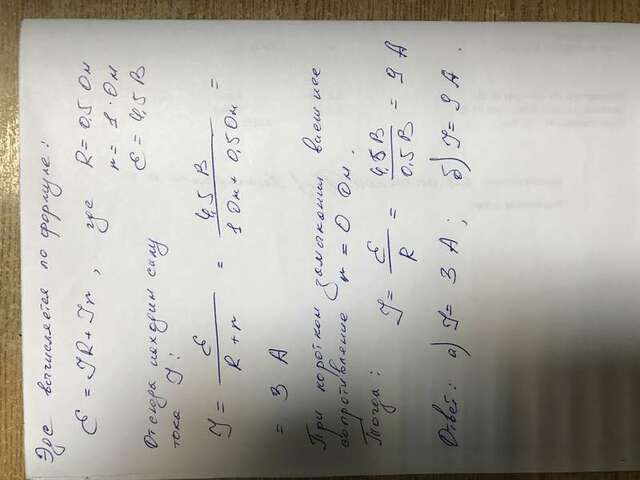 Эдс вычисляется по формуле:
Ɛ = IR + Ir, где R = 0.5 Ом
r = 1 · Ом
Ɛ = 4,5 В
Отсюда находим силу
тока I:
I = Ɛ / (R + r) = 4,5 В / (1 Ом + 0,5 Ом) =
= 3 А
При коротком замыкании внешнее
сопротивление r = 0 Ом.
Тогда:
I = Ɛ / R = 4,5 В / 0,5 В = 9 А
Ответ: а) I = 3 А; б) I = 9 А.